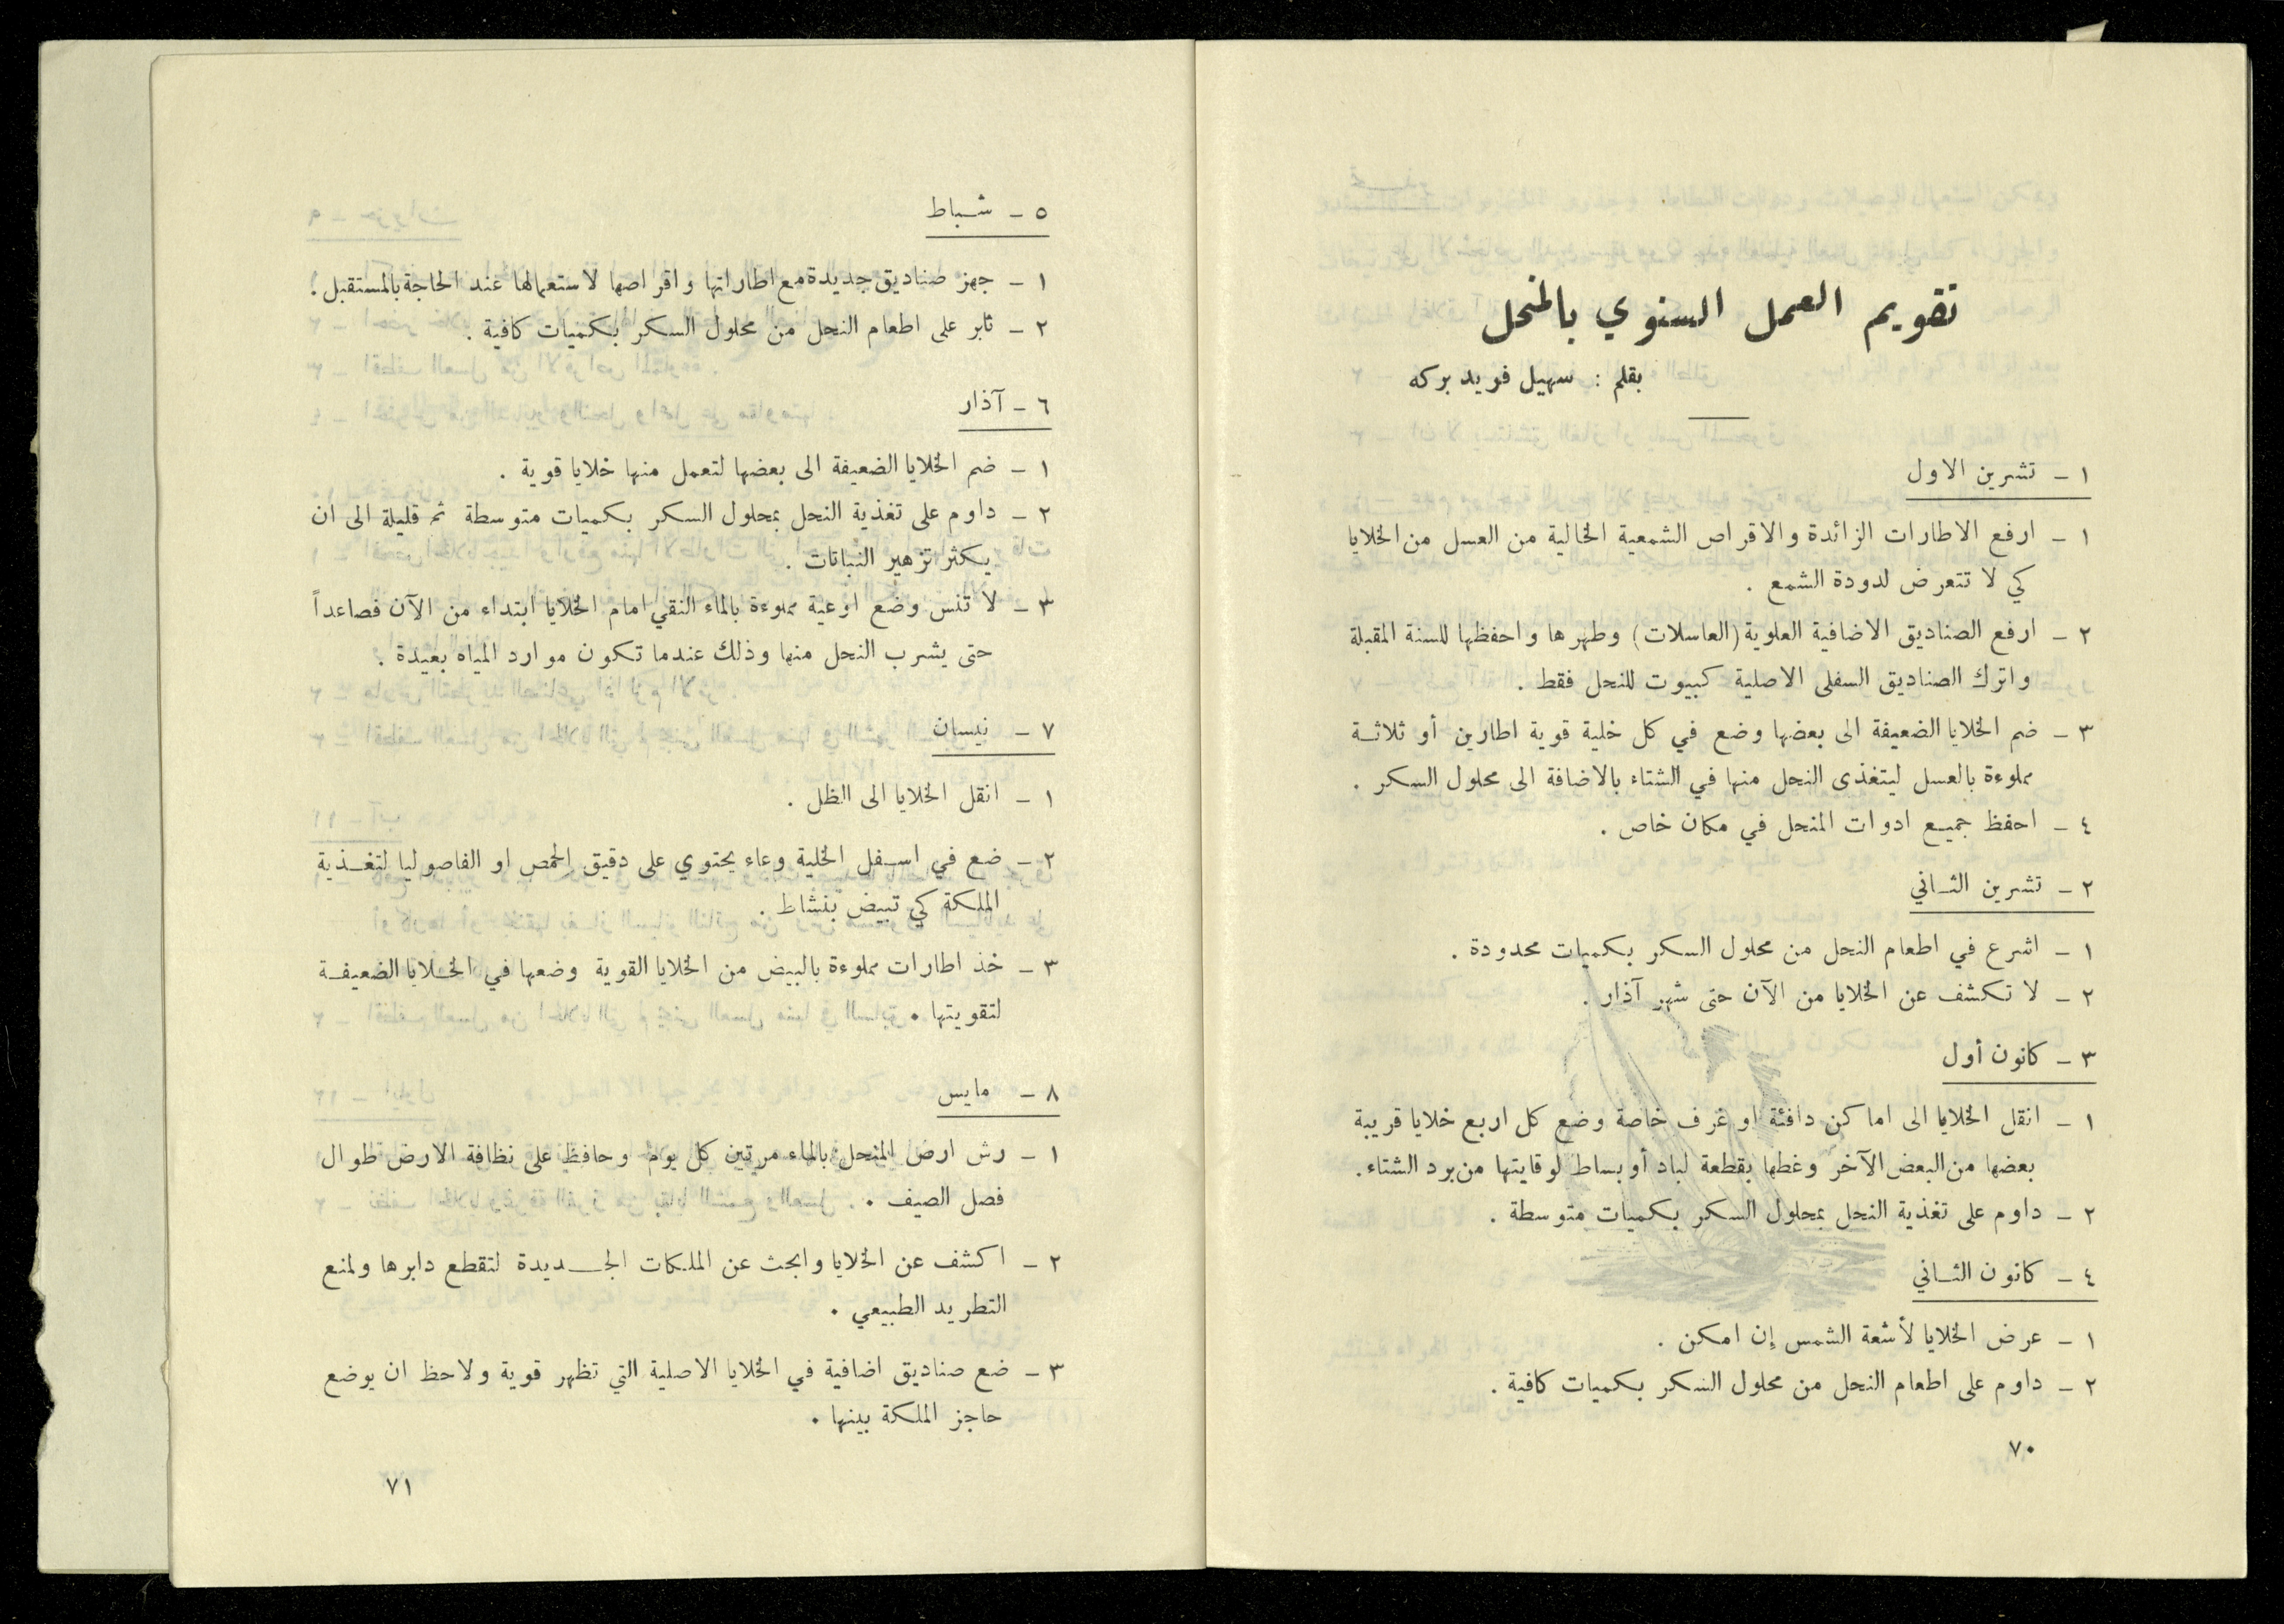 تقويم العمل السنوي بالمنحل
بقلم : سهيل فريد بركه
١ - تشرين الاول
١ - ارفع الاطارات الزائدة والاقراص الشمعية الخالية من العسل من الخلايا
كي لا تتعرض لدودة الشمع .
٢ - ارفع الصناديق الاضافية العلوية (العاسلات) وطهرها واحفظها للسنة المقبلة
واترك الصناديق السفلى الاصلية كبيوت للنحل فقط .
٣ - ضم الخلايا الضعيفة الى بعضها وضع في كل خلية قوية اطارين أو ثلاثة
مملوءة بالعسل ليتغذى النحل منها في الشتاء بالاضافة الى محلول السكر .
٤ - احفظ جميع ادوات المنحل في مكان خاص .
٢ - تشرين الثاني
١ - اشرع في اطعام النحل من محلول السكر بكميات محدودة .
٢ - لا تكشف عن الخلايا من الآن حتى شهر آذار .
٣ - كانون أول
١ - انقل الخلايا الى اماكن دافئة او غرف خاصة وضع كل اربع خلايا قريبة
بعضها من البعض الآخر وغطها بقطعة لباد أو بساط لوقايتها من برد الشتاء .
٢ - داوم على تغذية النحل بمحلول السكر بكميات متوسطة .
٤ - كانون الثاني
١ - عرض الخلايا لأشعة الشمس إن امكن .
٢ - داوم على اطعام النحل من محلول السكر بكميات كافية .
٧٠
٥ - شباط
١ - جهز صناديق جديدة مع اطاراتها واقراصها لاستعمالها عند الحاجة بالمستقبل .
٢ - ثابر على اطعام النحل من محلول السكر بكميات كافية .
٦ - آذار
١ - ضم الخلايا الضعيفة الى بعضها لتعمل منها خلايا قوية .
٢ - داوم على تغذية النحل بمحلول السكر بكميات متوسطة ثم قليلة الى ان
يكثر تزهير النباتات .
٣ - لا تنس وضع اوعية مملوءة بالماء النقي امام الخلايا ابتداء من الآن فصاعداً
حتى يشرب النحل منها وذلك عندما تكون موارد المياه بعيدة .
٧ - نيسان
١ - انقل الخلايا الى الظل .
٢ - ضع في اسفل الخلية وعاء يحتوي على دقيق الحمص او الفاصوليا لتغذية
الملكة كي تبيض بنشاط .
٣ - خذ اطارات مملوءة بالبيض من الخلايا القوية وضعها في الخلايا الضعيفة
لتقويتها .
٨ - مايس
١ - رش ارض المنحل بالماء مرتين كل يوم وحافظ على نظافة الارض طوال
فصل الصيف .
٢ - اكشف عن الخلايا وابحث عن الملكات الجديدة لتقطع دابرها ولمنع
التطريد الطبيعي .
٣ - ضع صناديق اضافية في الخلايا الاصلية التي تظهر قوية ولاحظ ان يوضع
حاجز الملكة بينها .
٧١